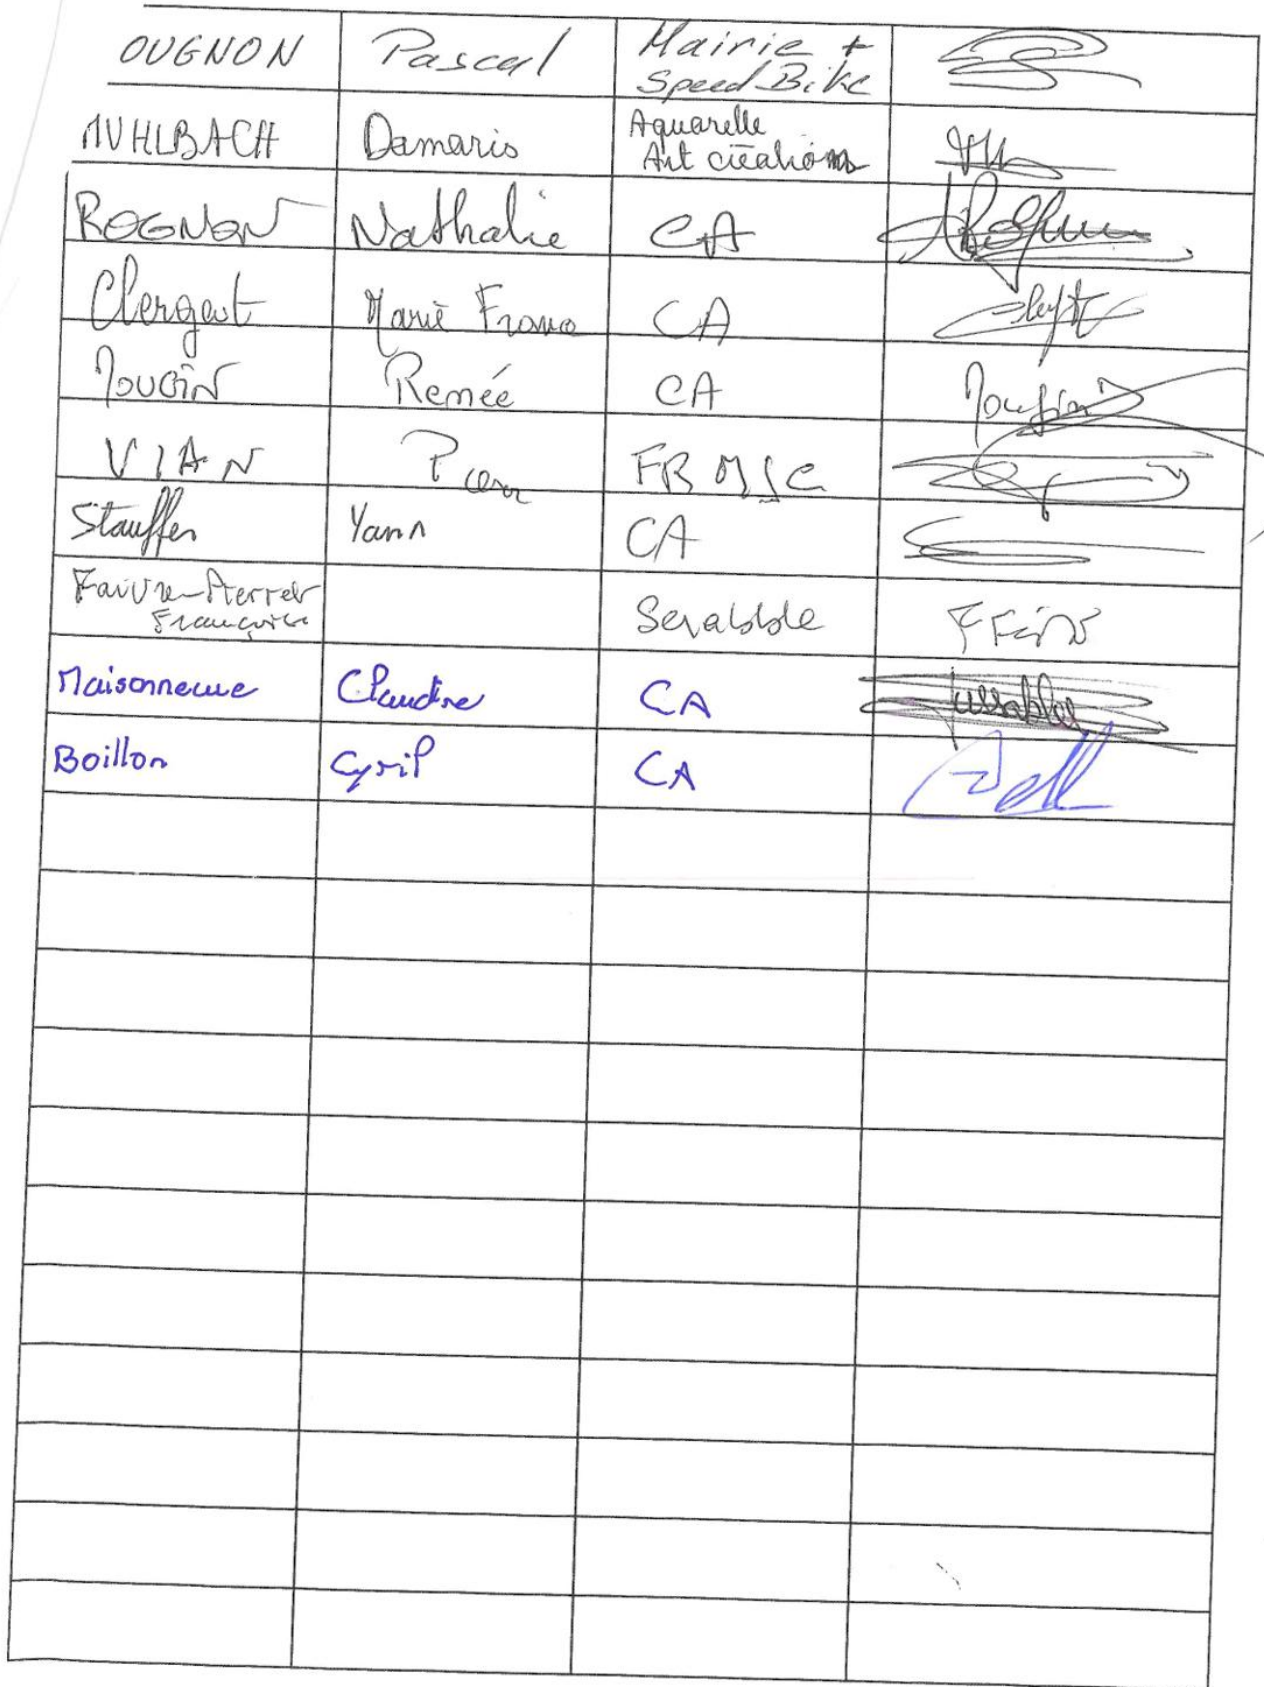 OUGNON Pascal Mairie +
Speed Bike
MUHLBACH Damaris Aquarelle
Art créations
ROGNON Nathalie CA
Clergeot Marie France CA
Renée CA
VIAN FRMJC
Stauffer Yann CA
Faivre-Pierret Scrabble
Françoise
Maisonneuve Claudine CA
Boillon Cyril CA